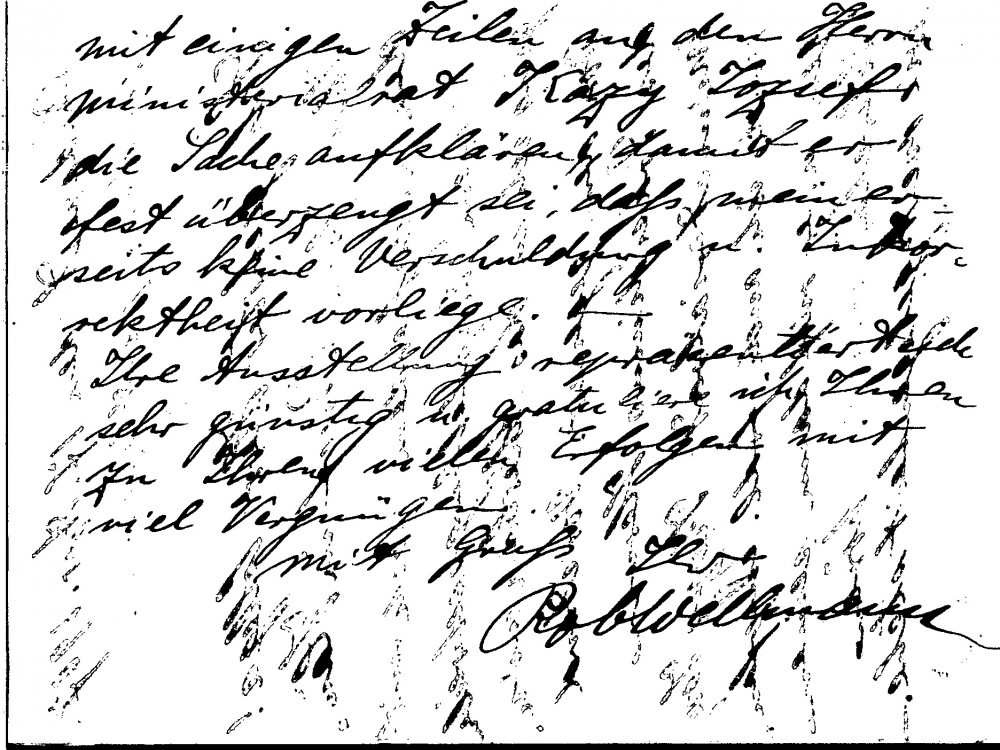 mit einigen Zeilen an den Herrn
Ministerialrat Kazy Jozsef,
die Sache aufklären, damit er
fest überzeugt sei, dass meiner-
seits keine Verschuldung u. Inkor-
rektheit vorliege. —
Ihre Ausstellung repräsentiert sich
sehr günstig u. gratuliere ich Ihnen
zu Ihren vielen Erfolgen mit
viel Vergnügen.
mit Gruß Ihr
Rob Wellmann